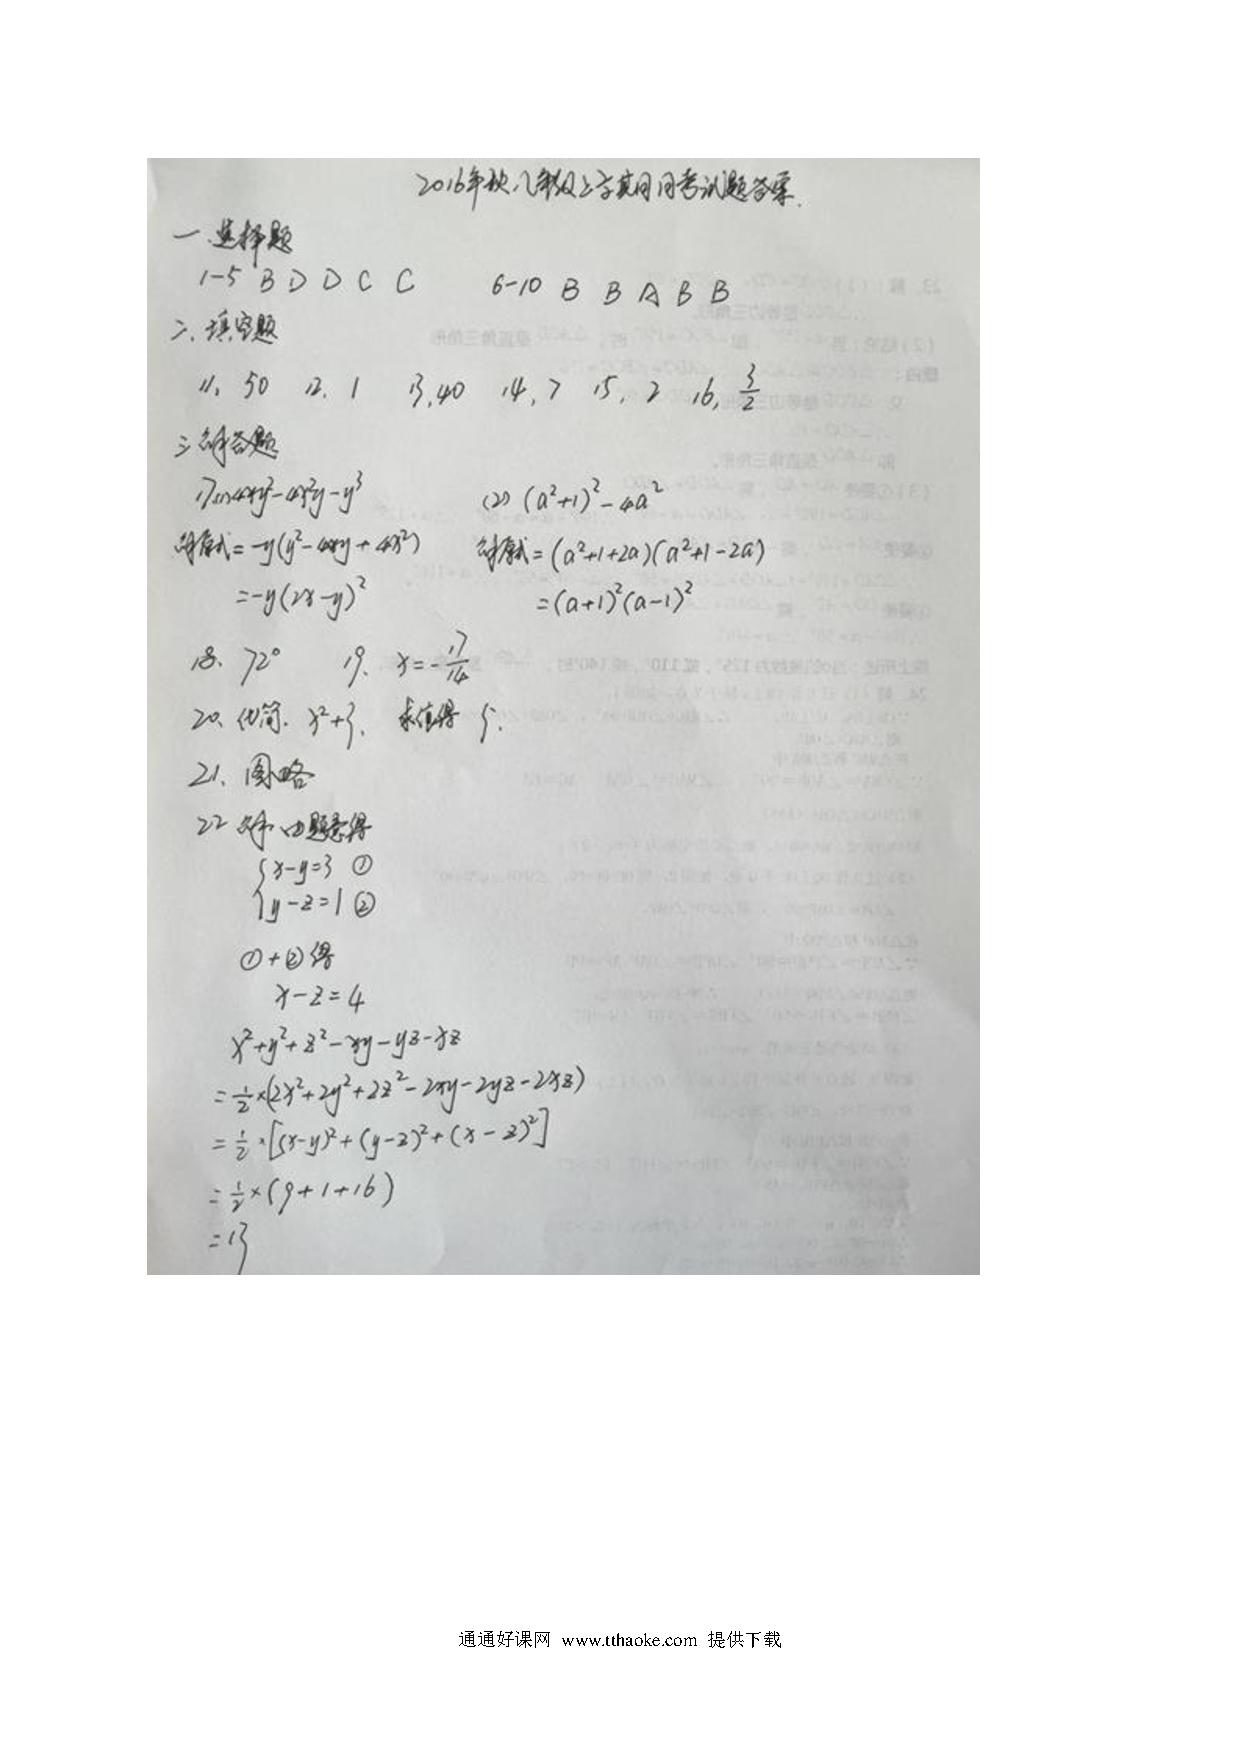 2016年秋八年级上学期月考试题答案.
一.选择题
1-5 B D D C C 6-10 B B A B B
二、填空题
11、50 12、1 13、40 14、7 15、2 16、3/2
三.解答题
17.(1) 4xy²-4x²y-y³ (2) (a²+1)²-4a²
解原式=-y(y²-4xy+4x²) 解原式=(a²+1+2a)(a²+1-2a)
=-y(2x-y)² =(a+1)²(a-1)²
18、72° 19、x=-17/14
20、化简. x²+3、求值得 5.
21、图略
22 解 由题意得
{x-y=3 ①
{y-z=1 ②
①+②得
x-z=4
x²+y²+z²-xy-yz-xz
=1/2×(2x²+2y²+2z²-2xy-2yz-2xz)
=1/2×[(x-y)²+(y-z)²+(x-z)²]
=1/2×(9+1+16)
=13
通通好课网 www.tthaoke.com 提供下载